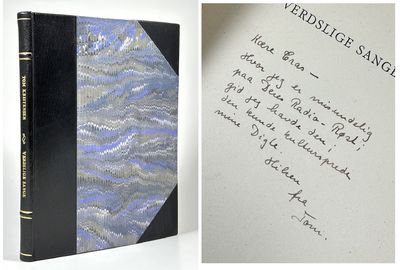 TOM KRISTENSEN
VERDSLIGE SANGE
VERDSLIGE SANGE
Kære Eras —
Hvor jeg er misundelig
paa Deres Radio Røst;
gid jeg havde den;
den kunde kultursprede
mine Digte.
Hilsen
fra
Tom.